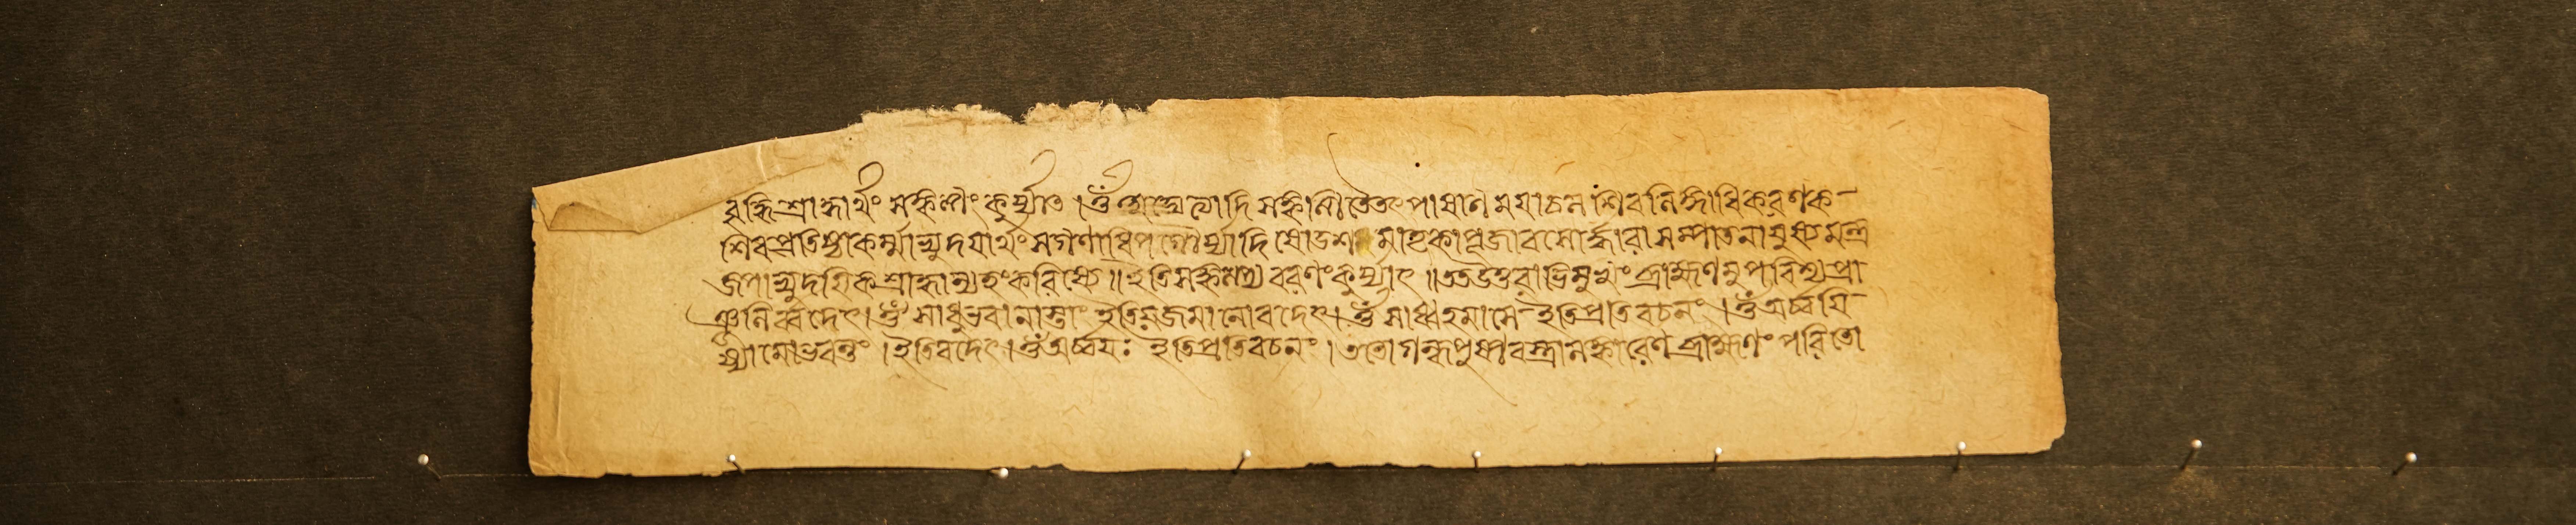 বৃদ্ধিশ্রাদ্ধার্থং সঙ্কল্পং কুর্য্যাৎ । ওঁ অদ্যেত্যাদি পাষাণময়াচল শিবলিঙ্গাধিকরণক
শিবপ্রতিষ্ঠাকর্ম্মাভ্যুদয়ার্থং সগণাধিপগৌর্য্যাদিষোডশমাতৃকাপূজাবসোর্দ্ধারাসম্পাতনায়ুষ্যমন্ত্র
জপাভ্যুদয়িকশ্রাদ্ধান্যহং করিষ্যে ॥ ইতি সঙ্কল্প্য বরণং কুর্য্যাৎ ॥ তত উত্তরাভিমুখং ব্রাহ্মণমুপবিশ্য প্রা
ঞ্জলির্ব্বদেৎ । ওঁ সাধুভবানাস্তাং ইতি যজমানো বদেৎ । ওঁ সাধ্বহমাসে ইতি প্রতিবচনং । ওঁ অর্চ্চয়ি
ষ্যামো ভবন্তং । ইতি বদেৎ । ওঁ অর্চ্চয়ঃ ইতি প্রতিবচনং । ততো গন্ধপুষ্পবস্ত্রালঙ্কারেণ ব্রাহ্মণং পরিতো